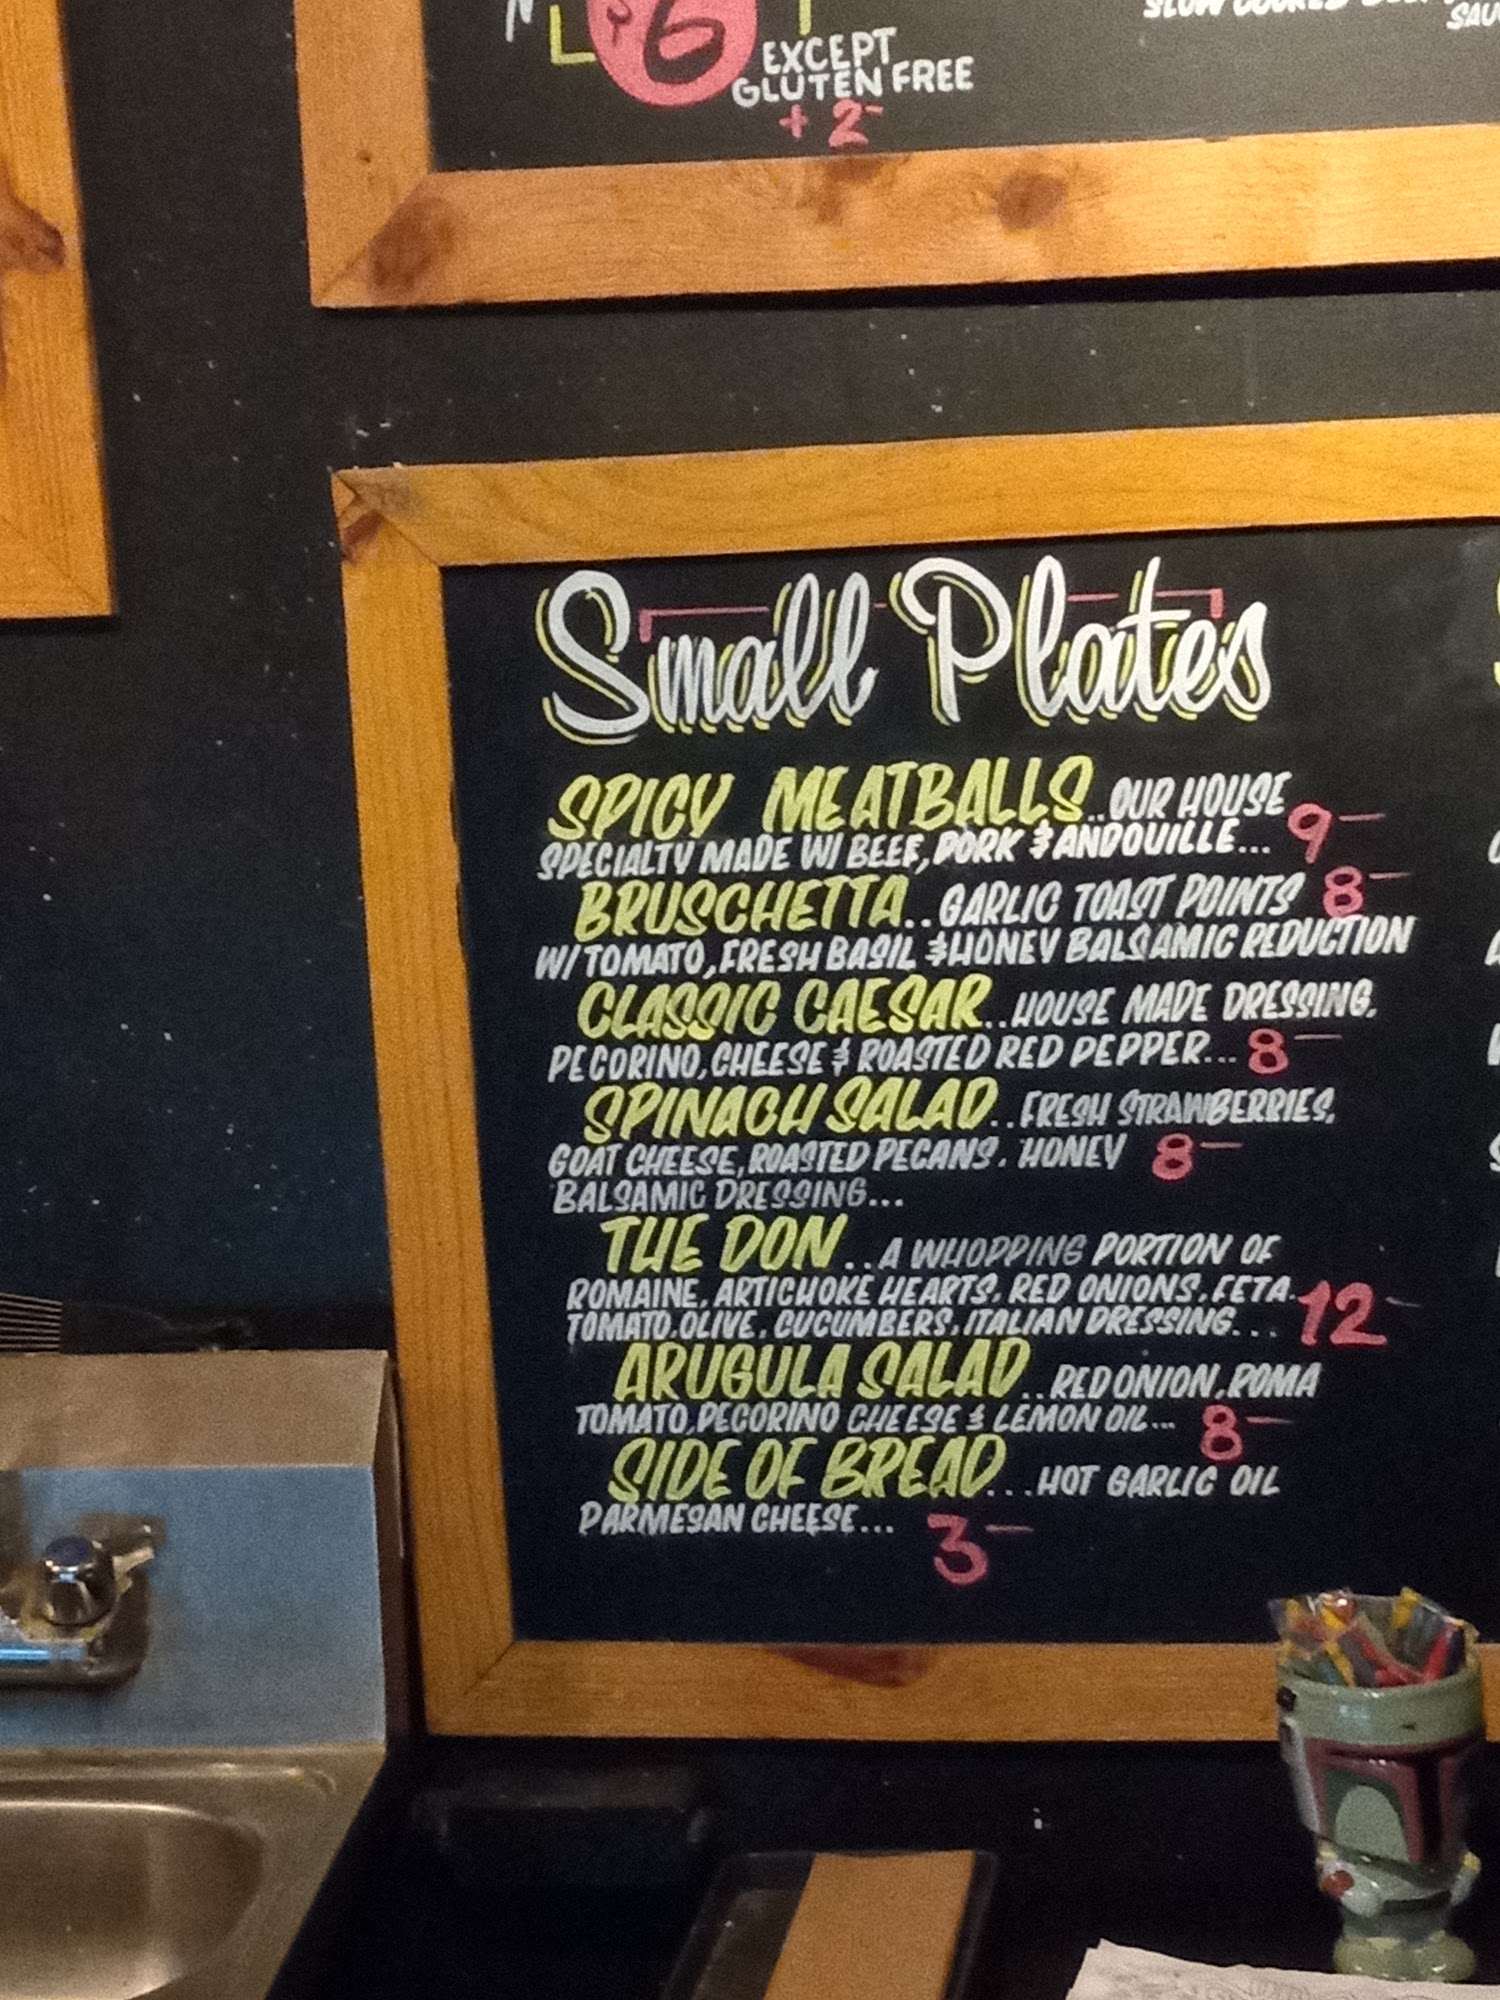 $6
EXCEPT
GLUTEN FREE
+ 2-
SLOW COOKED
Small Plates
SPICY MEATBALLS..OUR HOUSE
SPECIALTY MADE W/ BEEF, PORK & ANDOUILLE... 9-
BRUSCHETTA..GARLIC TOAST POINTS 8-
W/ TOMATO, FRESH BASIL & HONEY BALSAMIC REDUCTION
CLASSIC CAESAR..HOUSE MADE DRESSING,
PECORINO, CHEESE & ROASTED RED PEPPER... 8-
SPINACH SALAD..FRESH STRAWBERRIES,
GOAT CHEESE, ROASTED PECANS, HONEY 8-
BALSAMIC DRESSING...
THE DON..A WHOPPING PORTION OF
ROMAINE, ARTICHOKE HEARTS, RED ONIONS, FETA,
TOMATO, OLIVE, CUCUMBERS, ITALIAN DRESSING... 12-
ARUGULA SALAD..RED ONION, ROMA
TOMATO, PECORINO CHEESE & LEMON OIL... 8-
SIDE OF BREAD...HOT GARLIC OIL
PARMESAN CHEESE... 3-